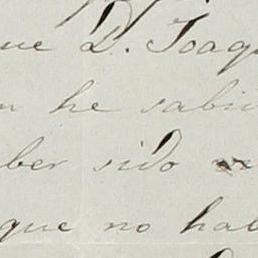 que D. Joaqu
n he sabid
ber sido
que no hab